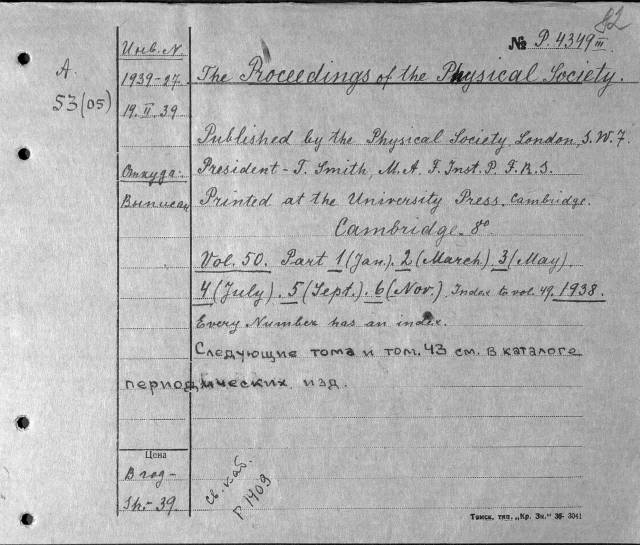 82
№ P. 4349 III
A.
53(05)
Инв. N.
1939-27
19. II. 39
The Proceedings of the Physical Society.
Published by the Physical Society London S.W.7.
Откуда:
President - T. Smith, M.A. F. Inst. P. F.R.S.
Выписан
Printed at the University Press. Cambridge.
Cambridge. 8°
Vol. 50. Part 1 (Jan.). 2 (March). 3 (May).
4 (July). 5 (Sept.). 6 (Nov.). Index to vol. 49. 1938.
Every Number has an index.
Следующие тома и том. 43 см. в каталоге
периодических изд.
Цена
В год -
- 39.
св. каб.
P 1409
Томск. тип. „Кр. Зн." 36- 3041